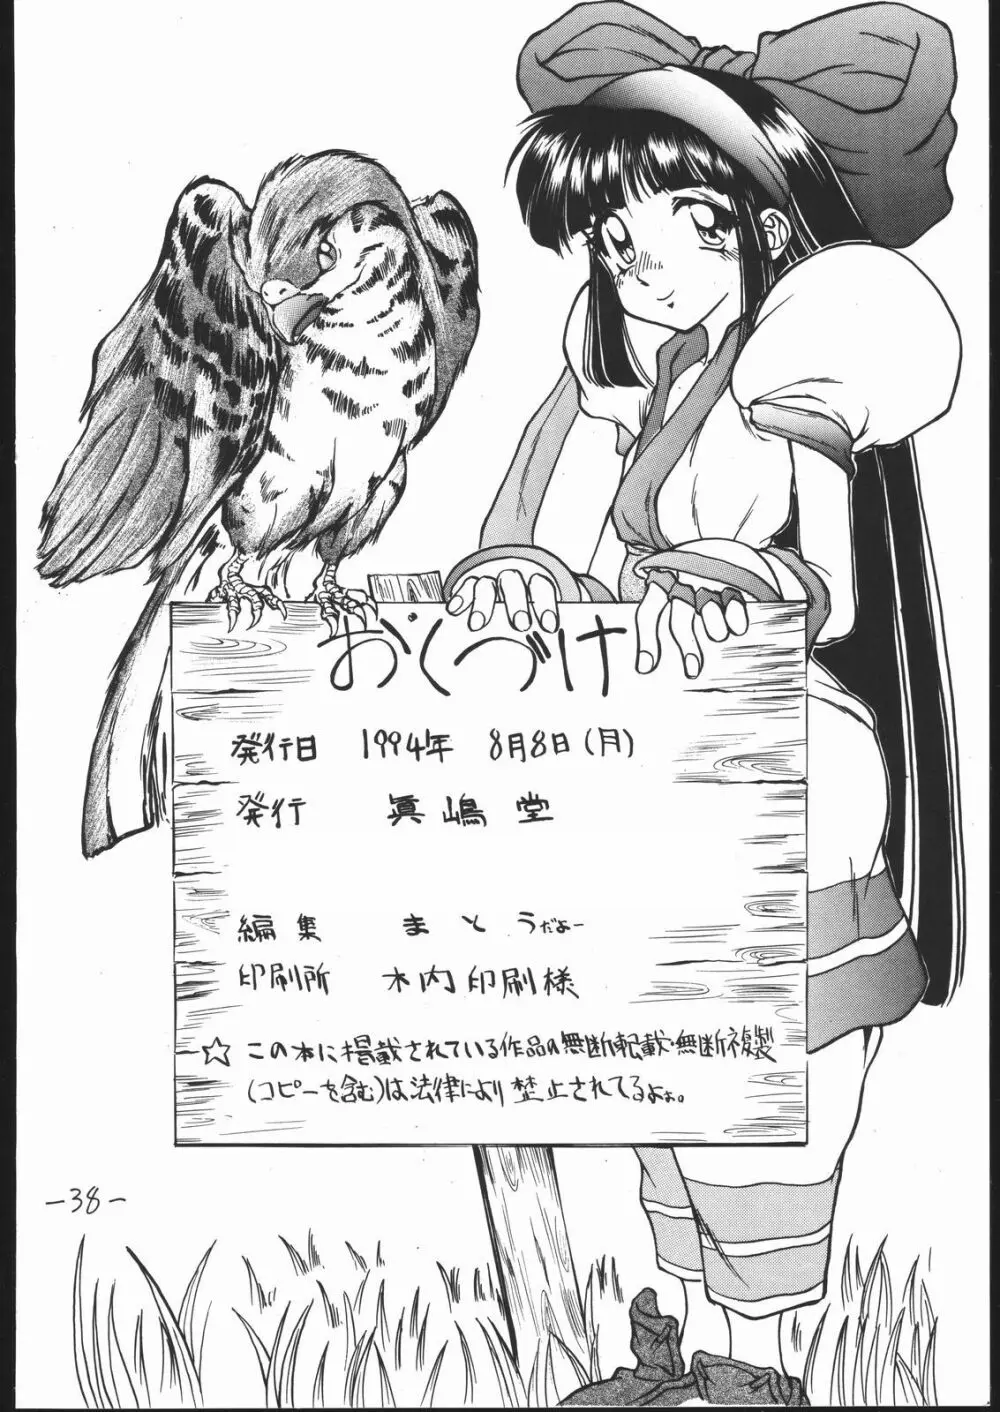 おくづけ
発行日 1994年 8月8日(月)
発行 眞嶋堂
編集 まとうだよー
印刷所 木内印刷様
☆ この本に掲載されている作品の無断転載・無断複製
(コピーを含む)は法律により禁止されてるよぉ。
-38-